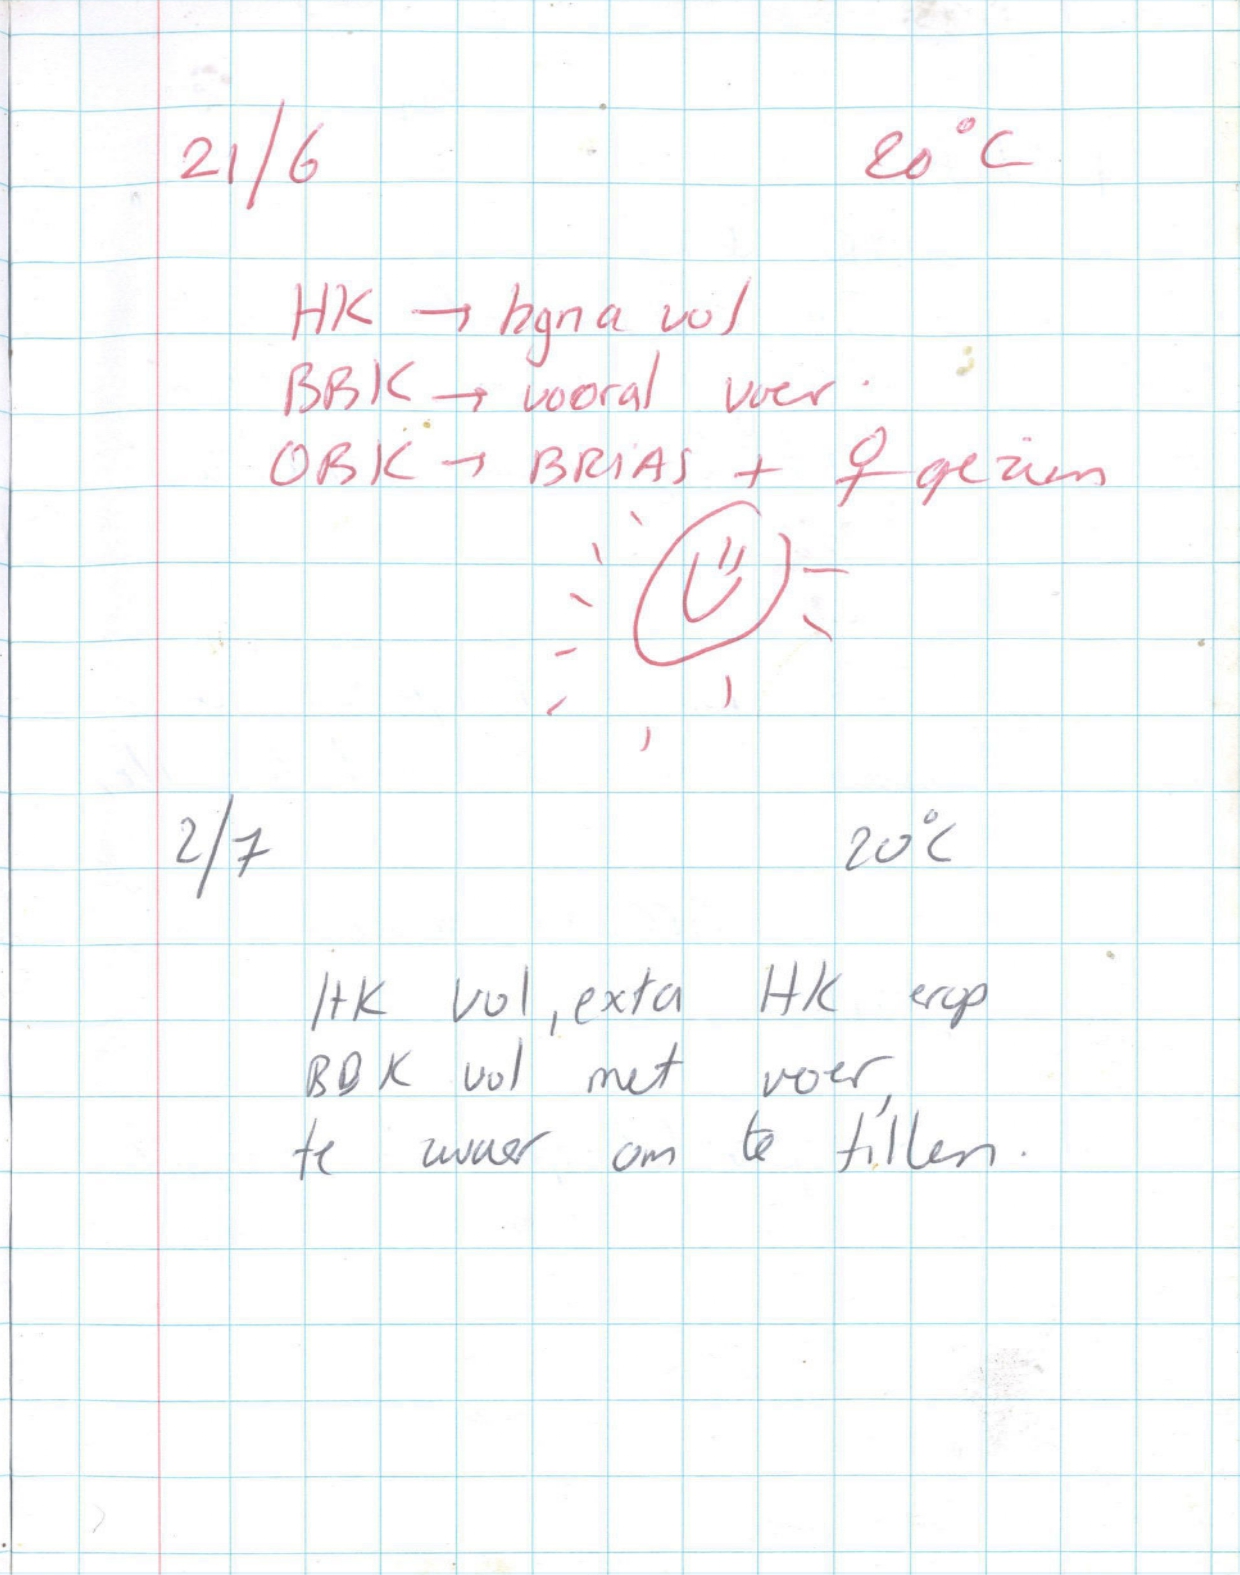 21/6 20°C
HK → bijna vol
BBK → vooral voer.
OBK → BRIAS + ♀ gezien
2/7 20°C
HK vol, exta HK erop
BBK vol met voer,
te zwaar om te tillen.